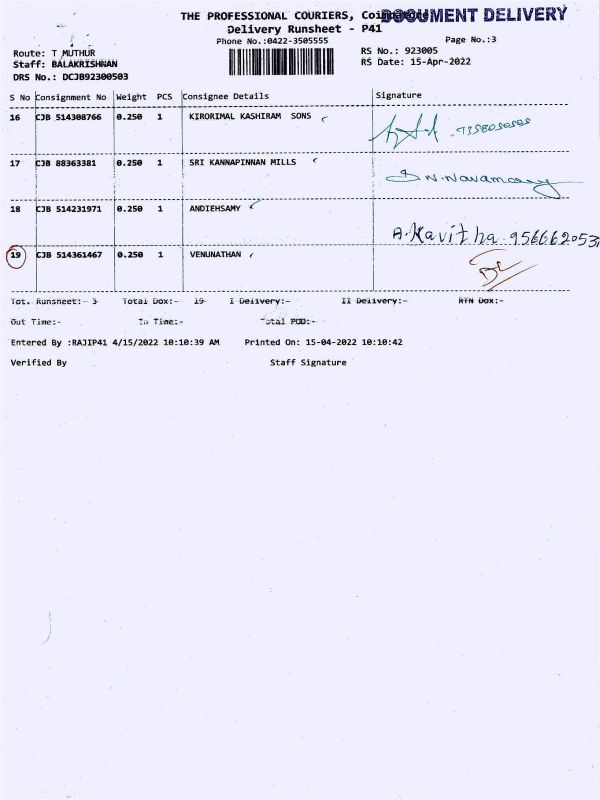 THE PROFESSIONAL COURIERS, Coimbatore
DOCUMENT DELIVERY
Delivery Runsheet - P41
Phone No.:0422-3505555
Page No.:3
Route: T MUTHUR
RS No.: 923005
Staff: BALAKRISHNAN
RS Date: 15-Apr-2022
DRS No.: DCJB92300503
S No Consignment No Weight PCS Consignee Details Signature
16 CJB 514308766 0.250 1 KIRORIMAL KASHIRAM SONS
17 CJB 88363381 0.250 1 SRI KANNAPINNAN MILLS
18 CJB 514231971 0.250 1 ANDIEHSAMY
A.Kavitha 956662053
19 CJB 514361467 0.250 1 VENUNATHAN
Tot. Runsheet:- 3 Total Dox:- 19 I Delivery:- II Delivery:- RTN Dox:-
Out Time:- In Time:- Total POD:-
Entered By :RAJIP41 4/15/2022 10:10:39 AM Printed On: 15-04-2022 10:10:42
Verified By Staff Signature